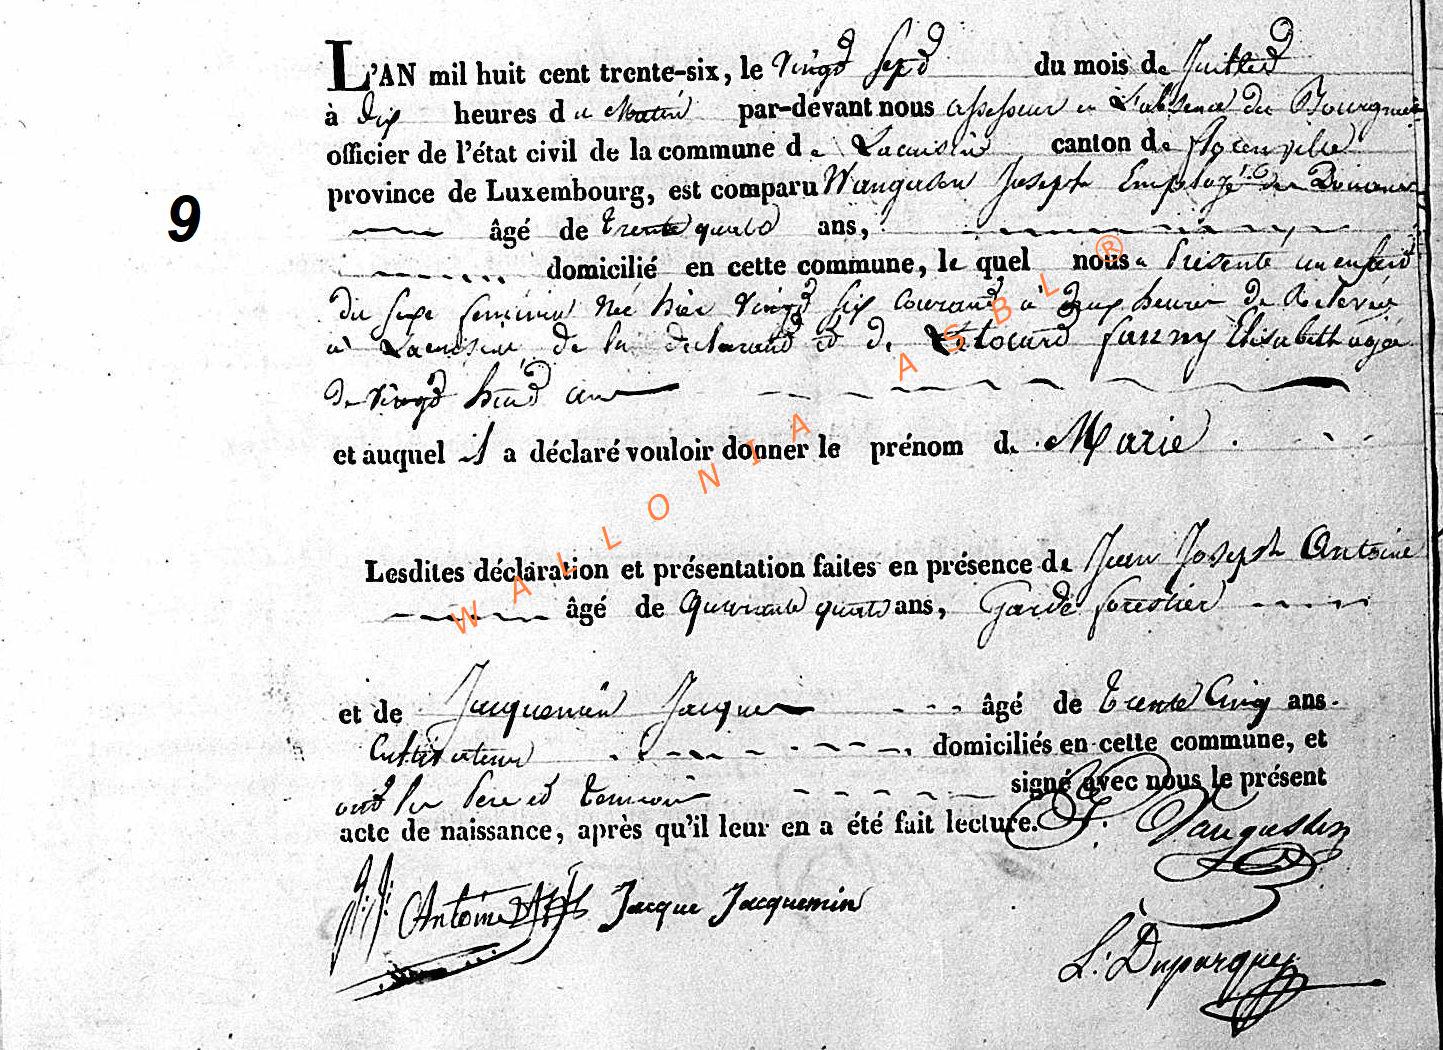 L'AN mil huit cent trente-six, le vingt sept du mois de Juillet
à dix heures du Matin par-devant nous assesseur en L'absence du Bourgmes
officier de l'état civil de la commune de Lacuisine canton de florenville
9
province de Luxembourg, est comparu Vangusten Joseph Employé des Douanes
âgé de trente quatre ans,
domicilié en cette commune, le quel nous a Présenté un enfant
du sexe feminin née hier vingt six courant à deux heures de Relevée
à Lacuisine de lui déclarant et de fanny Elisabeth agée
de vingt huit ans
et auquel il a déclaré vouloir donner le prénom de Marie
WALLONIA ASBL ®
Lesdites déclaration et présentation faites en présence de Jean Joseph Antoine
âgé de Quarante quatre ans, Garde forestier
et de Jacquemin Jacques âgé de trente Cinq ans.
Cultivateur domiciliés en cette commune, et
ont les Père et temoins signé avec nous le présent
acte de naissance, après qu'il leur en a été fait lecture. J. Vangusten
J: J: Antoine Jacque Jacquemin
L: Duparque